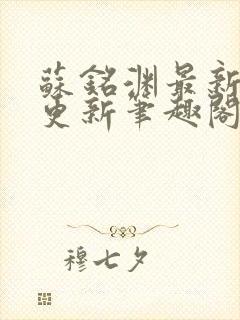 蘇銘淵最新
更新筆趣閣
穆七夕